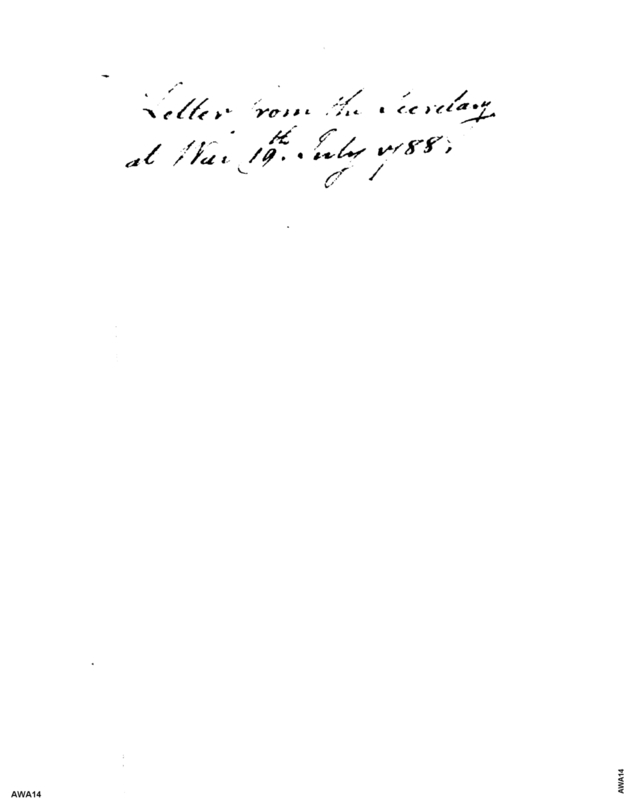 Letter from the Secretary
at War 19th July 1788.
AWA14
AWA14